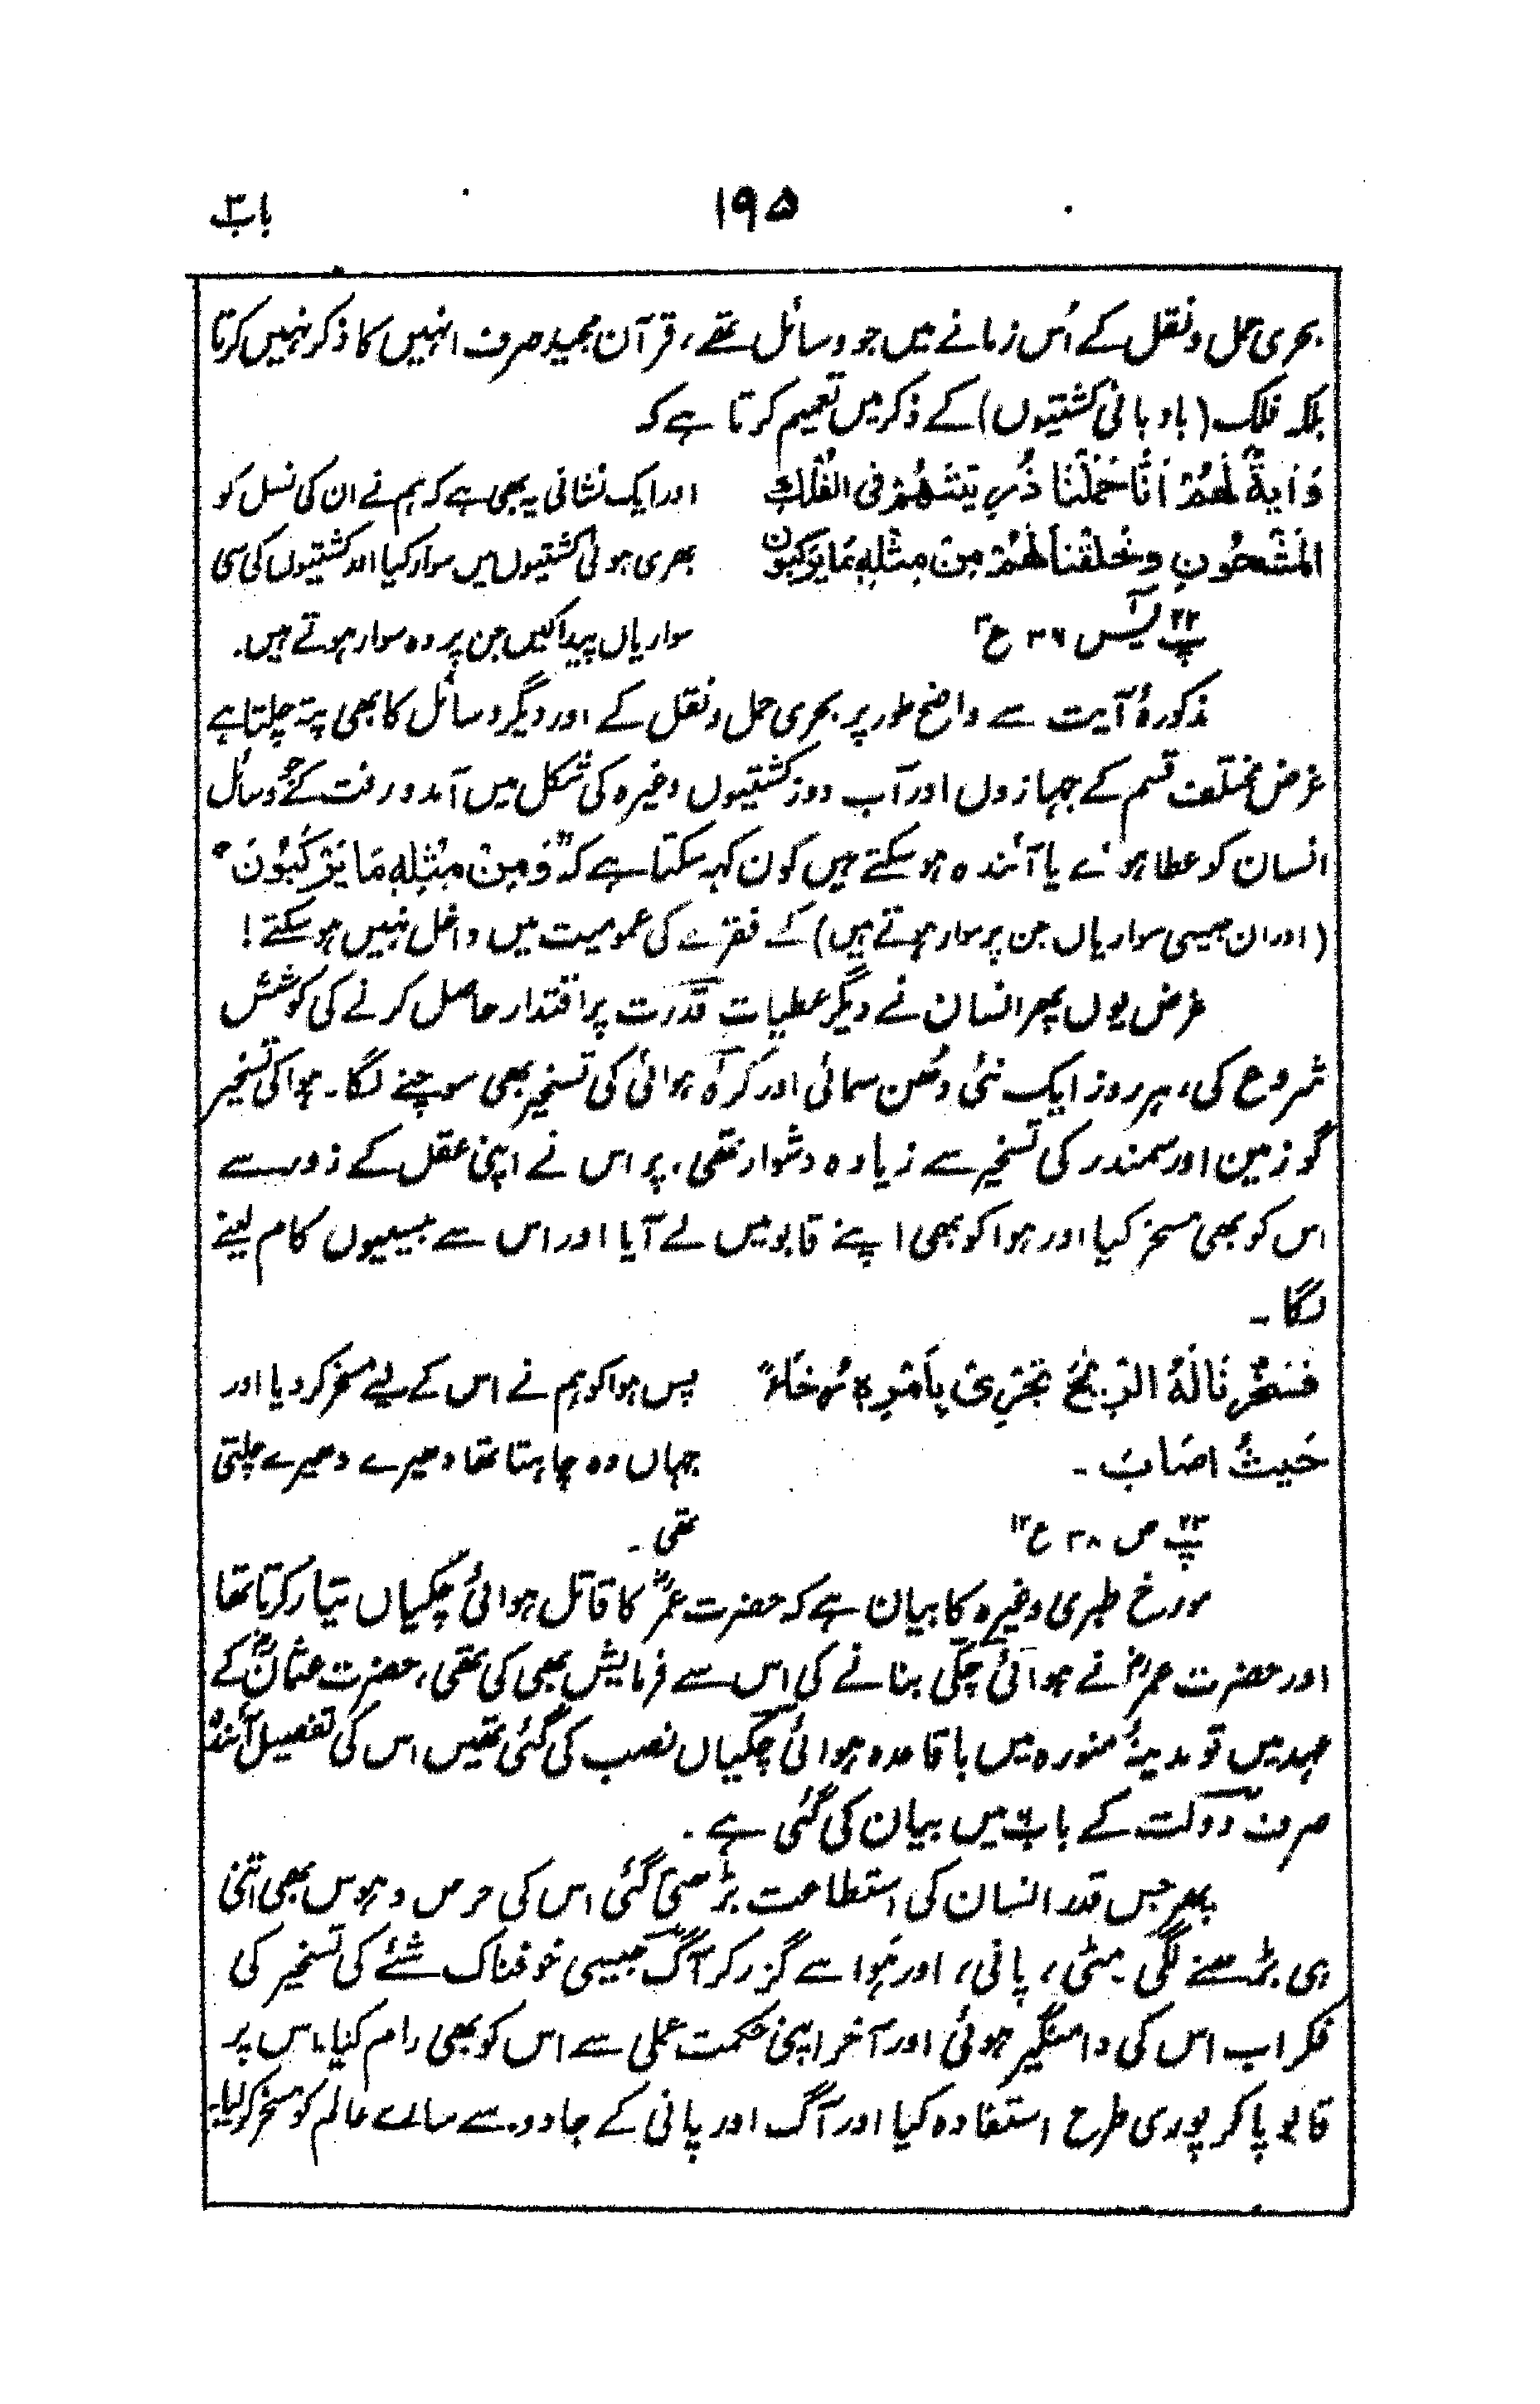 ۱۹۵
باب۳
بحری حمل و نقل کے اُس زمانے میں جو وسائل تھے، قرآن مجید صرف انہیں کا ذکر نہیں کرتا
بلکہ فلک (بادبانی کشتیوں) کے ذکر میں تعمیم کرتا ہے کہ
وَاٰیَۃٌ لَّھُمْ اَنَّا حَمَلْنَا ذُرِّیَّتَھُمْ فِی الْفُلْكِ
الْمَشْحُونِ وَخَلَقْنَا لَھُمْ مِنْ مِثْلِہٖ مَا یَرْکَبُون
پ۲۲ یٰسٓ ۳۶ ع۳
اور ایک نشانی یہ بھی ہے کہ ہم نے ان کی نسل کو
بھری ہوئی کشتیوں میں سوار کیا اور کشتیوں کی سی
سواریاں پیدا کیں جن پر وہ سوار ہوتے ہیں.
مذکورۂ آیت سے واضح طور پر بحری حمل و نقل کے اور دیگر وسائل کا بھی پتہ چلتا ہے
غرض مختلف قسم کے جہازوں اور آب دوز کشتیوں وغیرہ کی شکل میں آمد و رفت کے جو وسائل
انسان کو عطا ہوئے یا آئندہ ہو سکتے ہیں کون کہہ سکتا ہے کہ "وَمِنْ مِثْلِہٖ مَا یَرْکَبُوْنَ"
(اور ان جیسی سواریاں جن پر سوار ہوتے ہیں) کے فقرے کی عمومیت میں داخل نہیں ہو سکتے!
غرض یوں پھر انسان نے دیگر عطیاتِ قدرت پر اقتدار حاصل کرنے کی کوشش
شروع کی، ہر روز ایک نئی دُھن سمائی اور کرۂ ہوائی کی تسخیر بھی سوچنے لگا۔ ہوا کی تسخیر
گو زمین اور سمندر کی تسخیر سے زیادہ دشوار تھی. پر اس نے اپنی عقل کے زور سے
اس کو بھی مسخر کیا اور ہوا کو بھی اپنے قابو میں لے آیا اور اس سے بیسیوں کام لینے
لگا۔
فَسَخَّرْنَا لَہُ الرِّیْحَ تَجْرِیْ بِاَمْرِہٖ رُخَاءً
حَیثُ اصَابَ۔
پ۲۳ ص ۳۸ ع۱۲
پس ہوا کو ہم نے اس کے لیے مسخر کر دیا اور
جہاں وہ چاہتا تھا دھیرے دھیرے چلتی
تھی۔
مورخ طبری وغیرہ کا بیان ہے کہ حضرت عمرؓ کا قاتل ہوائی چکیاں تیار کرتا تھا
اور حضرت عمرؓ نے ہوائی چکی بنانے کی اس سے فرمایش بھی کی تھی، حضرت عثمانؓ کے
عہد میں تو مدینۂ منورہ میں باقاعدہ ہوائی چکیاں نصب کی گئی تھیں اس کی تفصیل آئندہ
صرف دولت کے باب میں بیان کی گئی ہے.
پھر جس قدر انسان کی استطاعت بڑھتی گئی اس کی حرص و ہوس بھی اتنی
ہی بڑھنے لگی۔ مٹی، پانی، اور ہَوا سے گزر کر آگ جیسی خوفناک شئے کی تسخیر کی
فکر اب اس کی دامنگیر ہوئی اور آخر اپنی حکمت عملی سے اس کو بھی رام کیا، اس پر
قابو پا کر پوری طرح استفادہ کیا اور آگ اور پانی کے جادو سے سارے عالم کو مسخر کر لیا۔